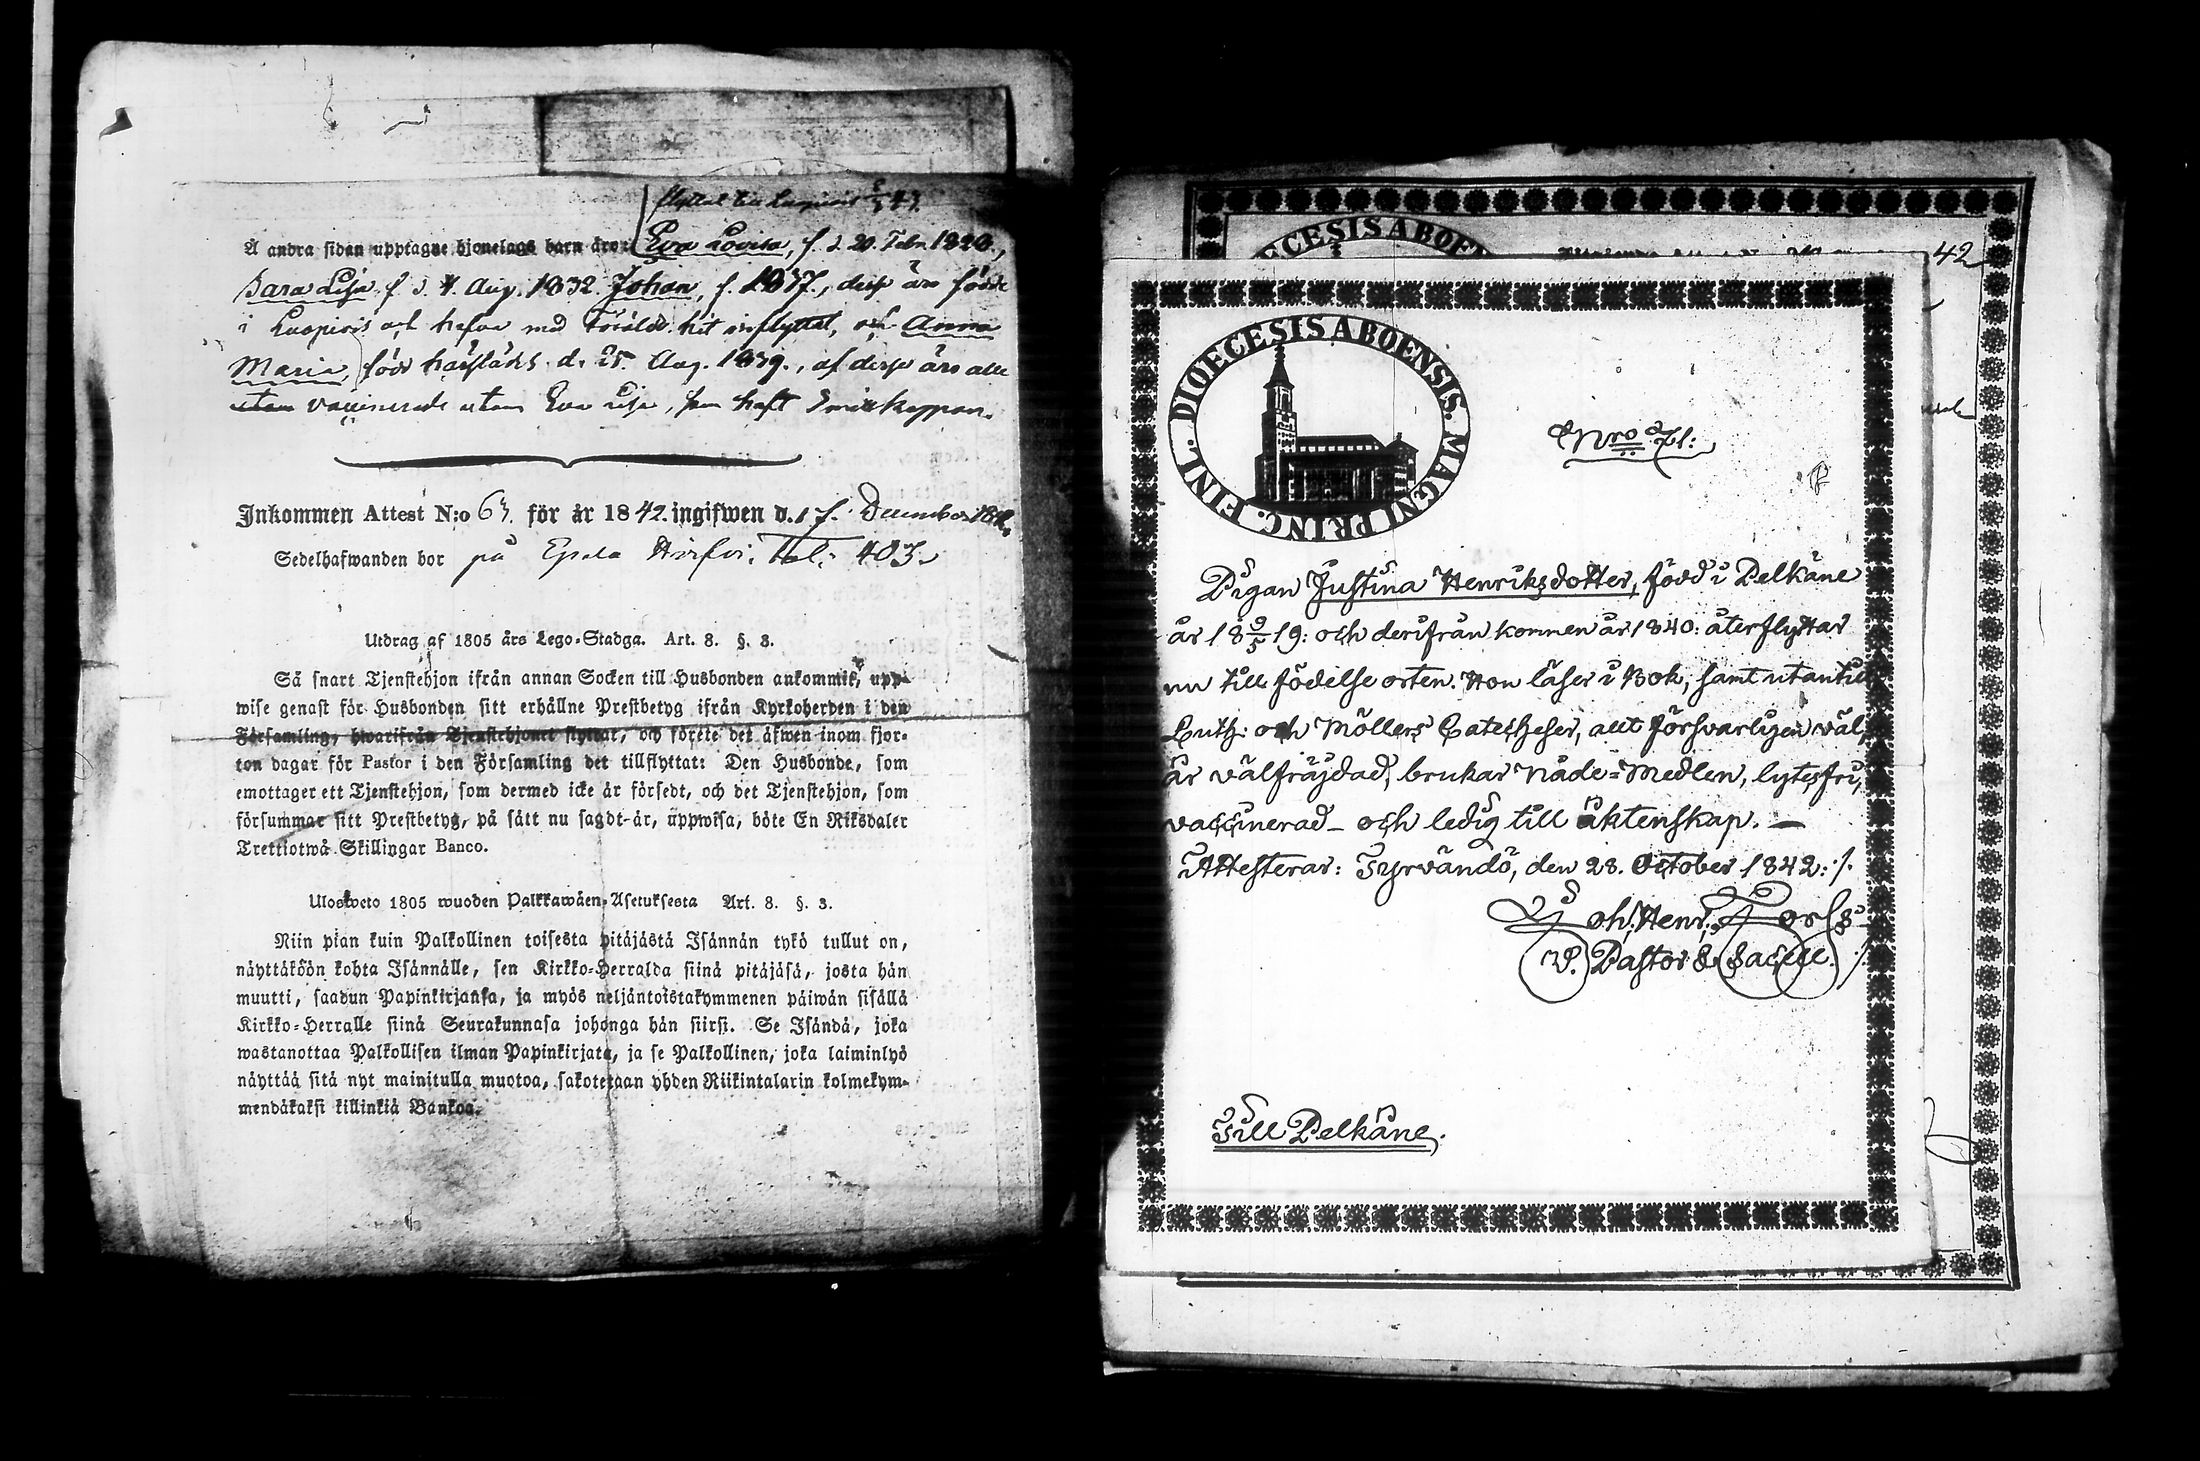 flyttat till Luopiois
Å andra sidan upptagne hjonelags barn äro: Eva Lovisa, f. d. 20. Febr. 1828.,
Sara Lisa f. d. 4. Aug. 1832. Johan, f. 1837., desse äro födde
i Luopiois och hafva med Föräldr. hit inflyttat, och Anna
Maria, född härstädes d. 25. Aug. 1839., af desse äro alla
vaccinerade utom Eva Lisa, som haft Smittkoppor.
Inkommen Attest N:o 63. för år 1842. ingifwen d. 17. December 1842.
Sedelhafwanden bor på Tal. 403.
Utdrag af 1805 års Lego-Stadga. Art. 8. §. 3.
Så snart Tjenstehjon ifrån annan Socken till Husbonden ankommit, upp-
wise genast för Husbonden sitt erhållne Prestbetyg ifrån Kyrkoherden i den
Församling, hwarifrån Tjenstehjonet flyttar, och förete det äfwen inom fjor-
ton dagar för Pastor i den Församling det tillflyttat: Den Husbonde, som
emottager ett Tjenstehjon, som dermed icke är försedt, och det Tjenstehjon, som
försummar sitt Prestbetyg, på sätt nu sagdt är, uppwisa, böte En Riksdaler
Trettiotwå Skillingar Banco.
Ulosweto 1805 wuoden Palkkawäen-Asetuksesta Art. 8. §. 3.
Niin pian kuin Palkollinen toisesta pitäjästä Isännän tykö tullut on,
näyttäköön kohta Isännälle, sen Kirkko-Herralda siinä pitäjäsä, josta hän
muutti, saadun Papinkirjansa, ja myös neljäntoistakymmenen päiwän sisällä
Kirkko-Herralle siinä Seurakunnasa johonga hän siirsi. Se Isändä, joka
wastanottaa Palkollisen ilman Papinkirjata, ja se Palkollinen, joka laiminlyö
näyttää sitä nyt mainitulla muotoa, sakotetaan yhden Riikintalarin kolmekym-
mendäkaksi killinkiä Bankoa.
DIOECESIS ABOEN
42
DIOECESIS ABOENSIS. MAGNI PRINC. FINL.
Nro 71.
Pigan Justina Henriksdotter, född i Pelkäne
år 18 9/5 19: och derifrån kommen år 1840: återflyttar
nu till födelse orten. Hon läser i Bok, samt utantill
Luth: och Möllers Catecheser, allt försvarligen väl,
är välfräjdad, brukar Nåde=Medlen, lytesfri,
vaccinerad – och ledig till äktenskap. —
Attesterar: Tyrvändö, den 28. October 1842: /.
Joh: Henr:
V. Pastor & Sacell. /.
Till Pelkäne.